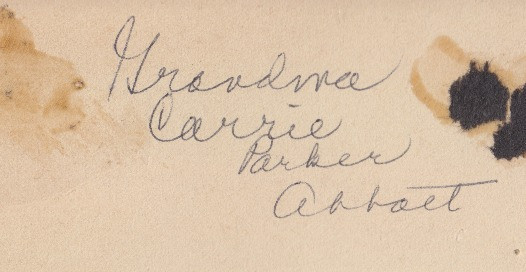 Grandma
Carrie
Parker
Abbott